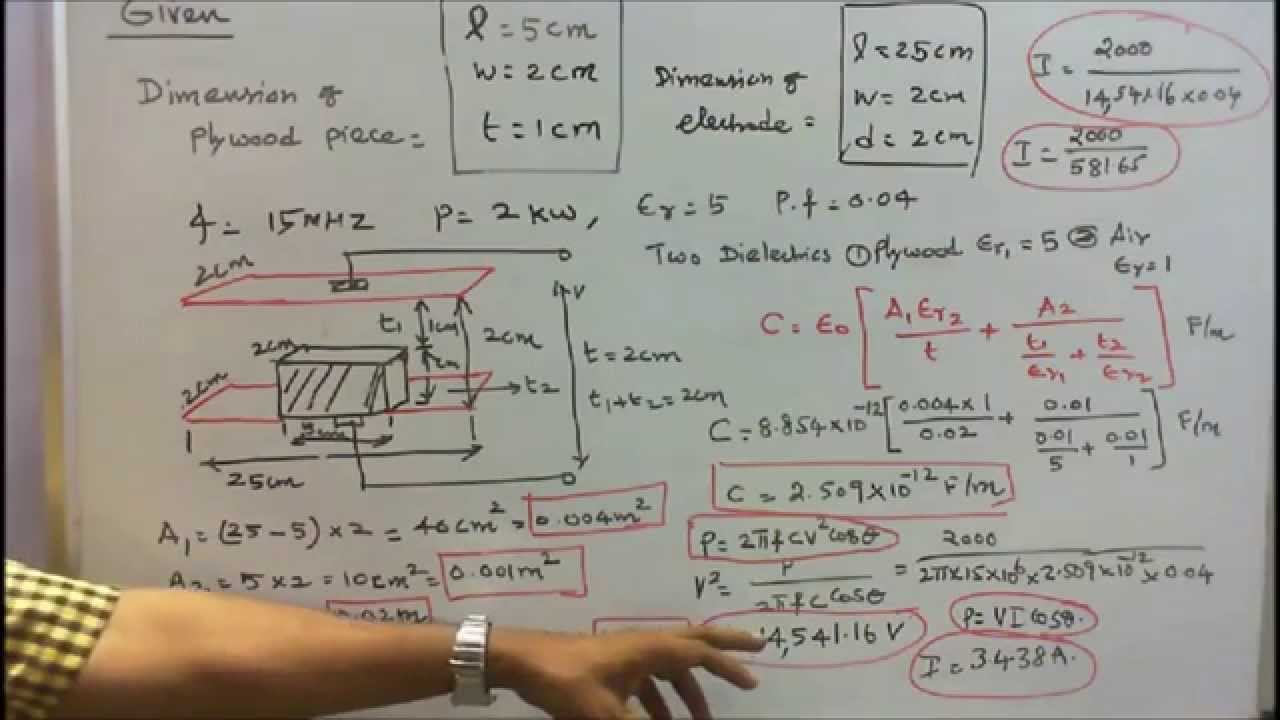 Given
Dimension of
Plywood piece =
l = 5cm
w = 2cm
t = 1cm
Dimension of
electrode =
l = 25cm
w = 2cm
d = 2cm
I = 2000 / 14,541.16 x 0.04
I = 2000 / 58165
f = 15 MHZ P = 2 KW, Er = 5 P.f = 0.04
Two Dielectrics ① Plywood Er₁ = 5 ② Air
Er = 1
2cm
t₁ 1cm
2cm
2cm
2cm
t₂
25cm
V
t = 2cm
t₁+t₂ = 2cm
C = Eo [ A₁Er₂ / t + A2 / ( t₁/Er₁ + t₂/Er₂ ) ] F/m
C = 8.854x10⁻¹² [ 0.004x1 / 0.02 + 0.01 / ( 0.01/5 + 0.01/1 ) ] F/m
C = 2.509x10⁻¹² F/m
A₁ = (25-5) x 2 = 40cm² = 0.004m²
= 5 x 2 = 10cm² = 0.001m²
P = 2πfCV²cosθ
V² = P / 2πfCcosθ = 2000 / 2πx15x10⁶x2.509x10⁻¹²x0.04
14,541.16 V
P = VI cosθ.
I = 3.438A.